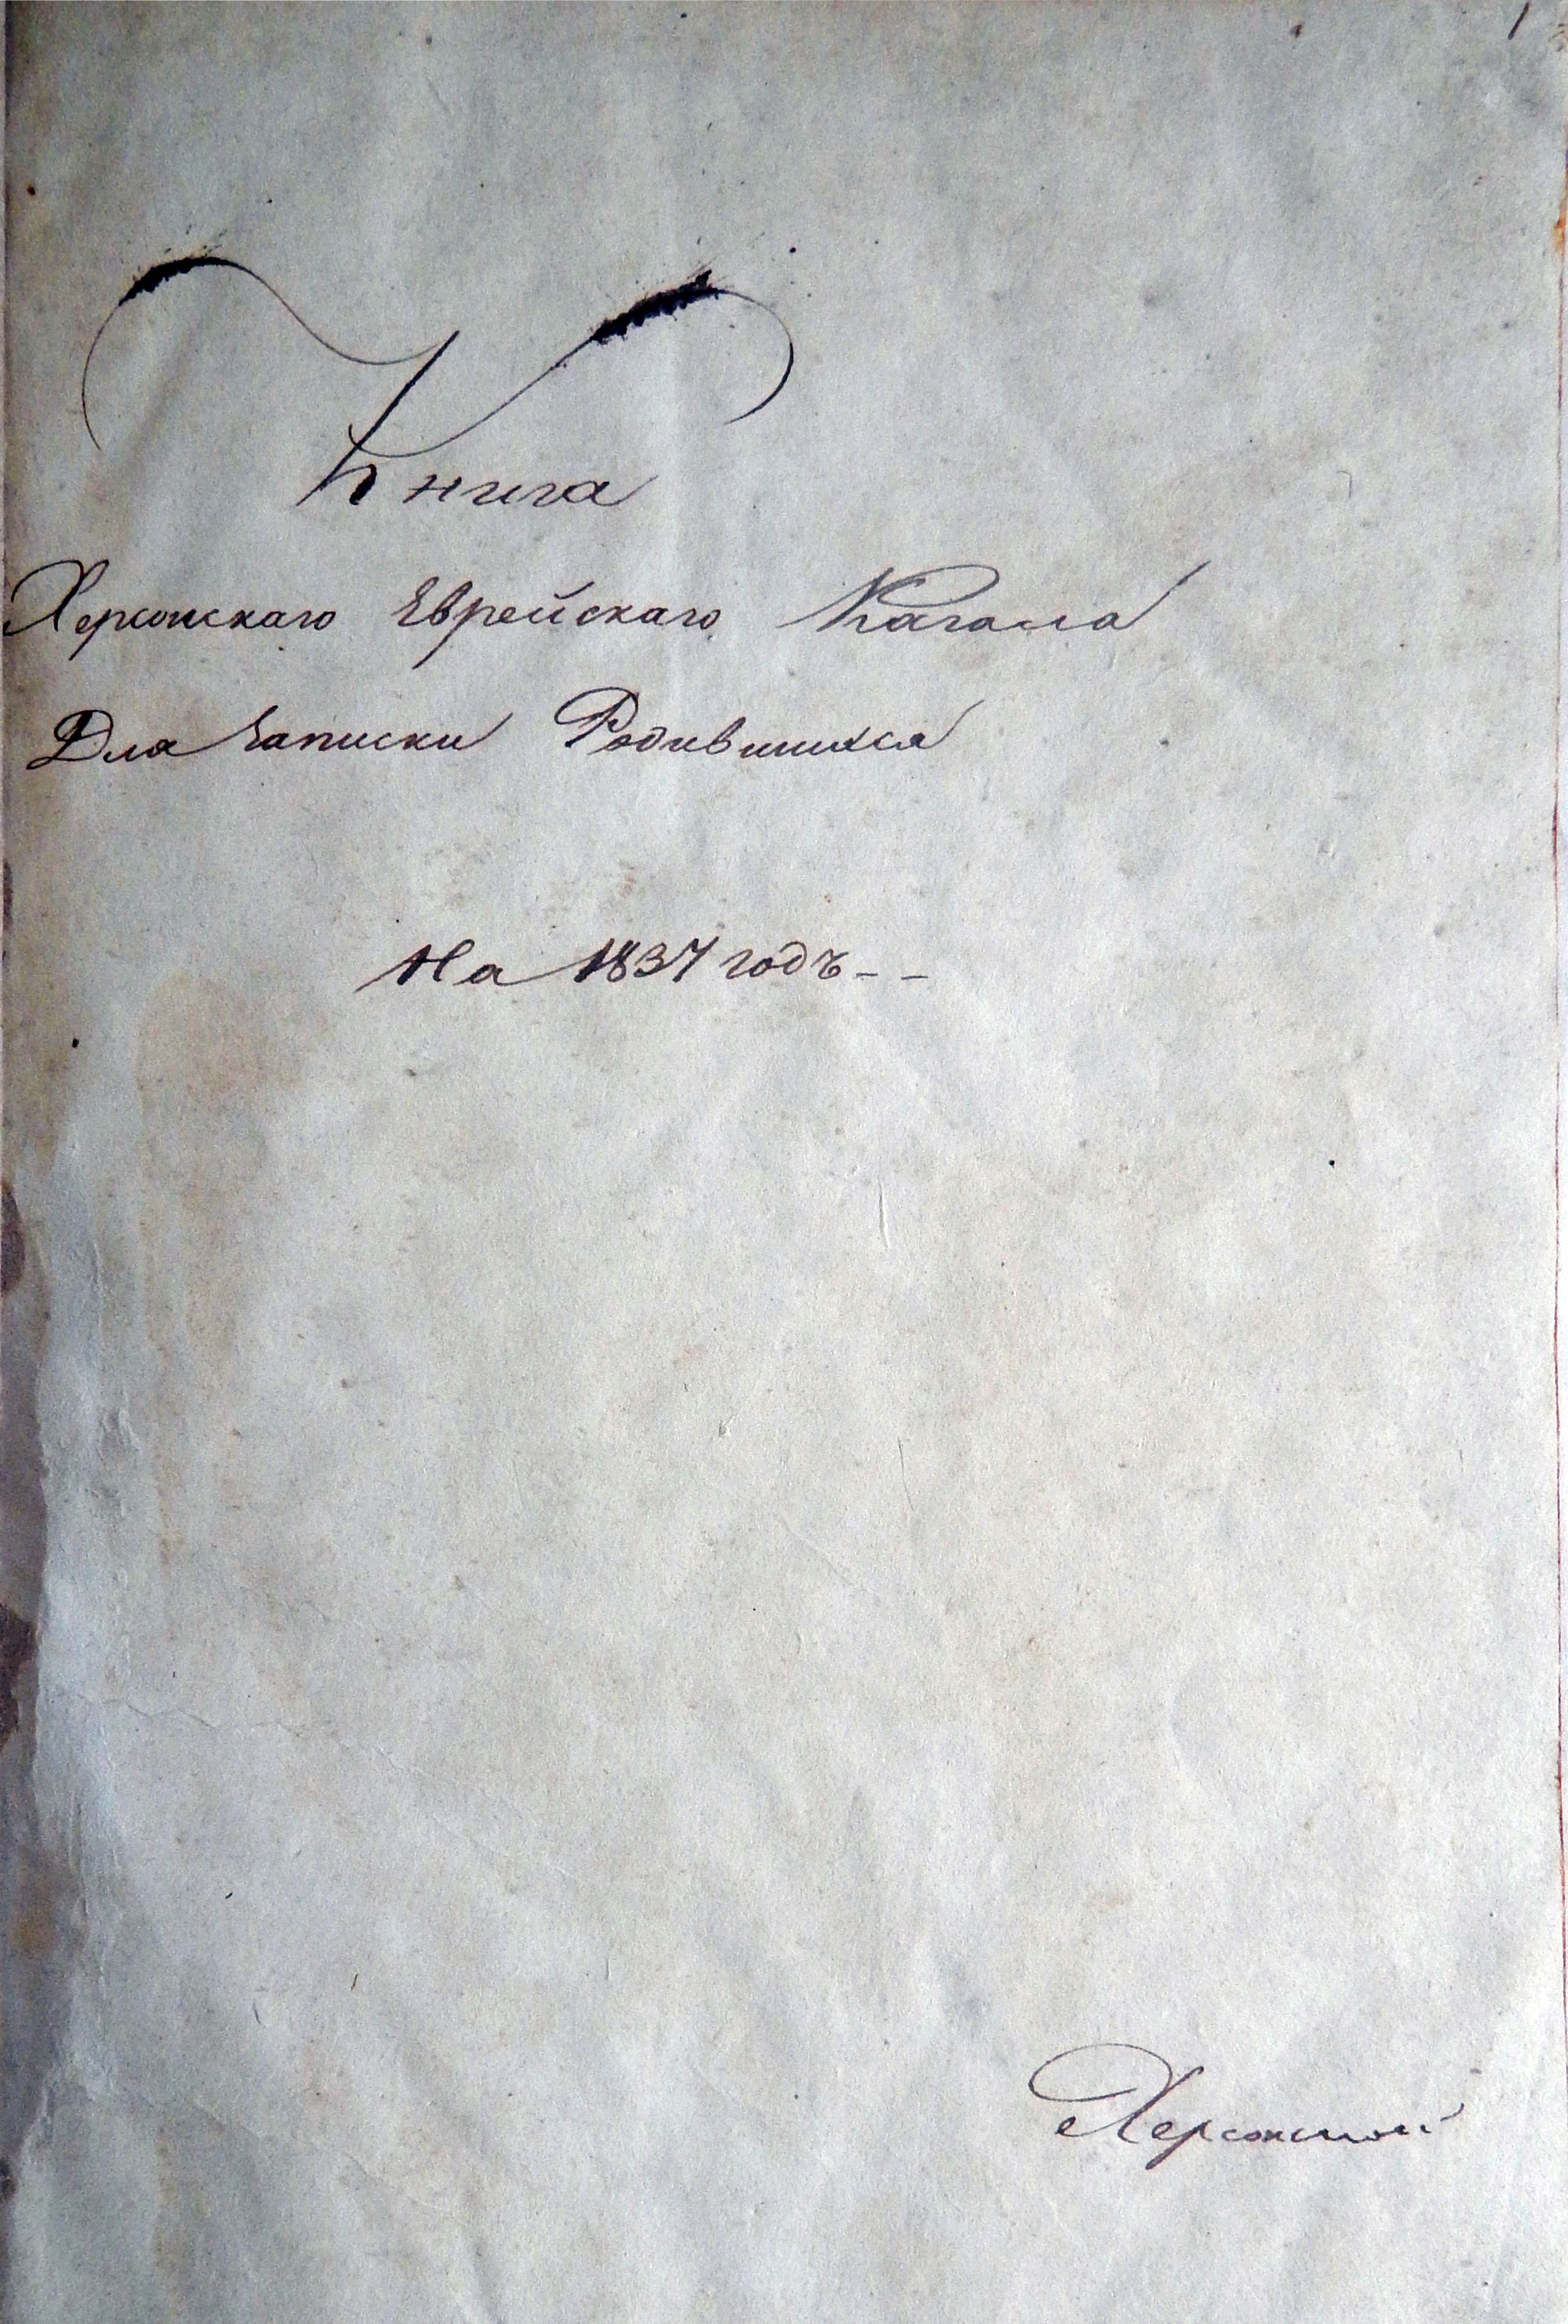 1
Книга
Херсонскаго Еврейскаго Кагала
Для Записки Родившихся
На 1837 годъ - -
Херсонской